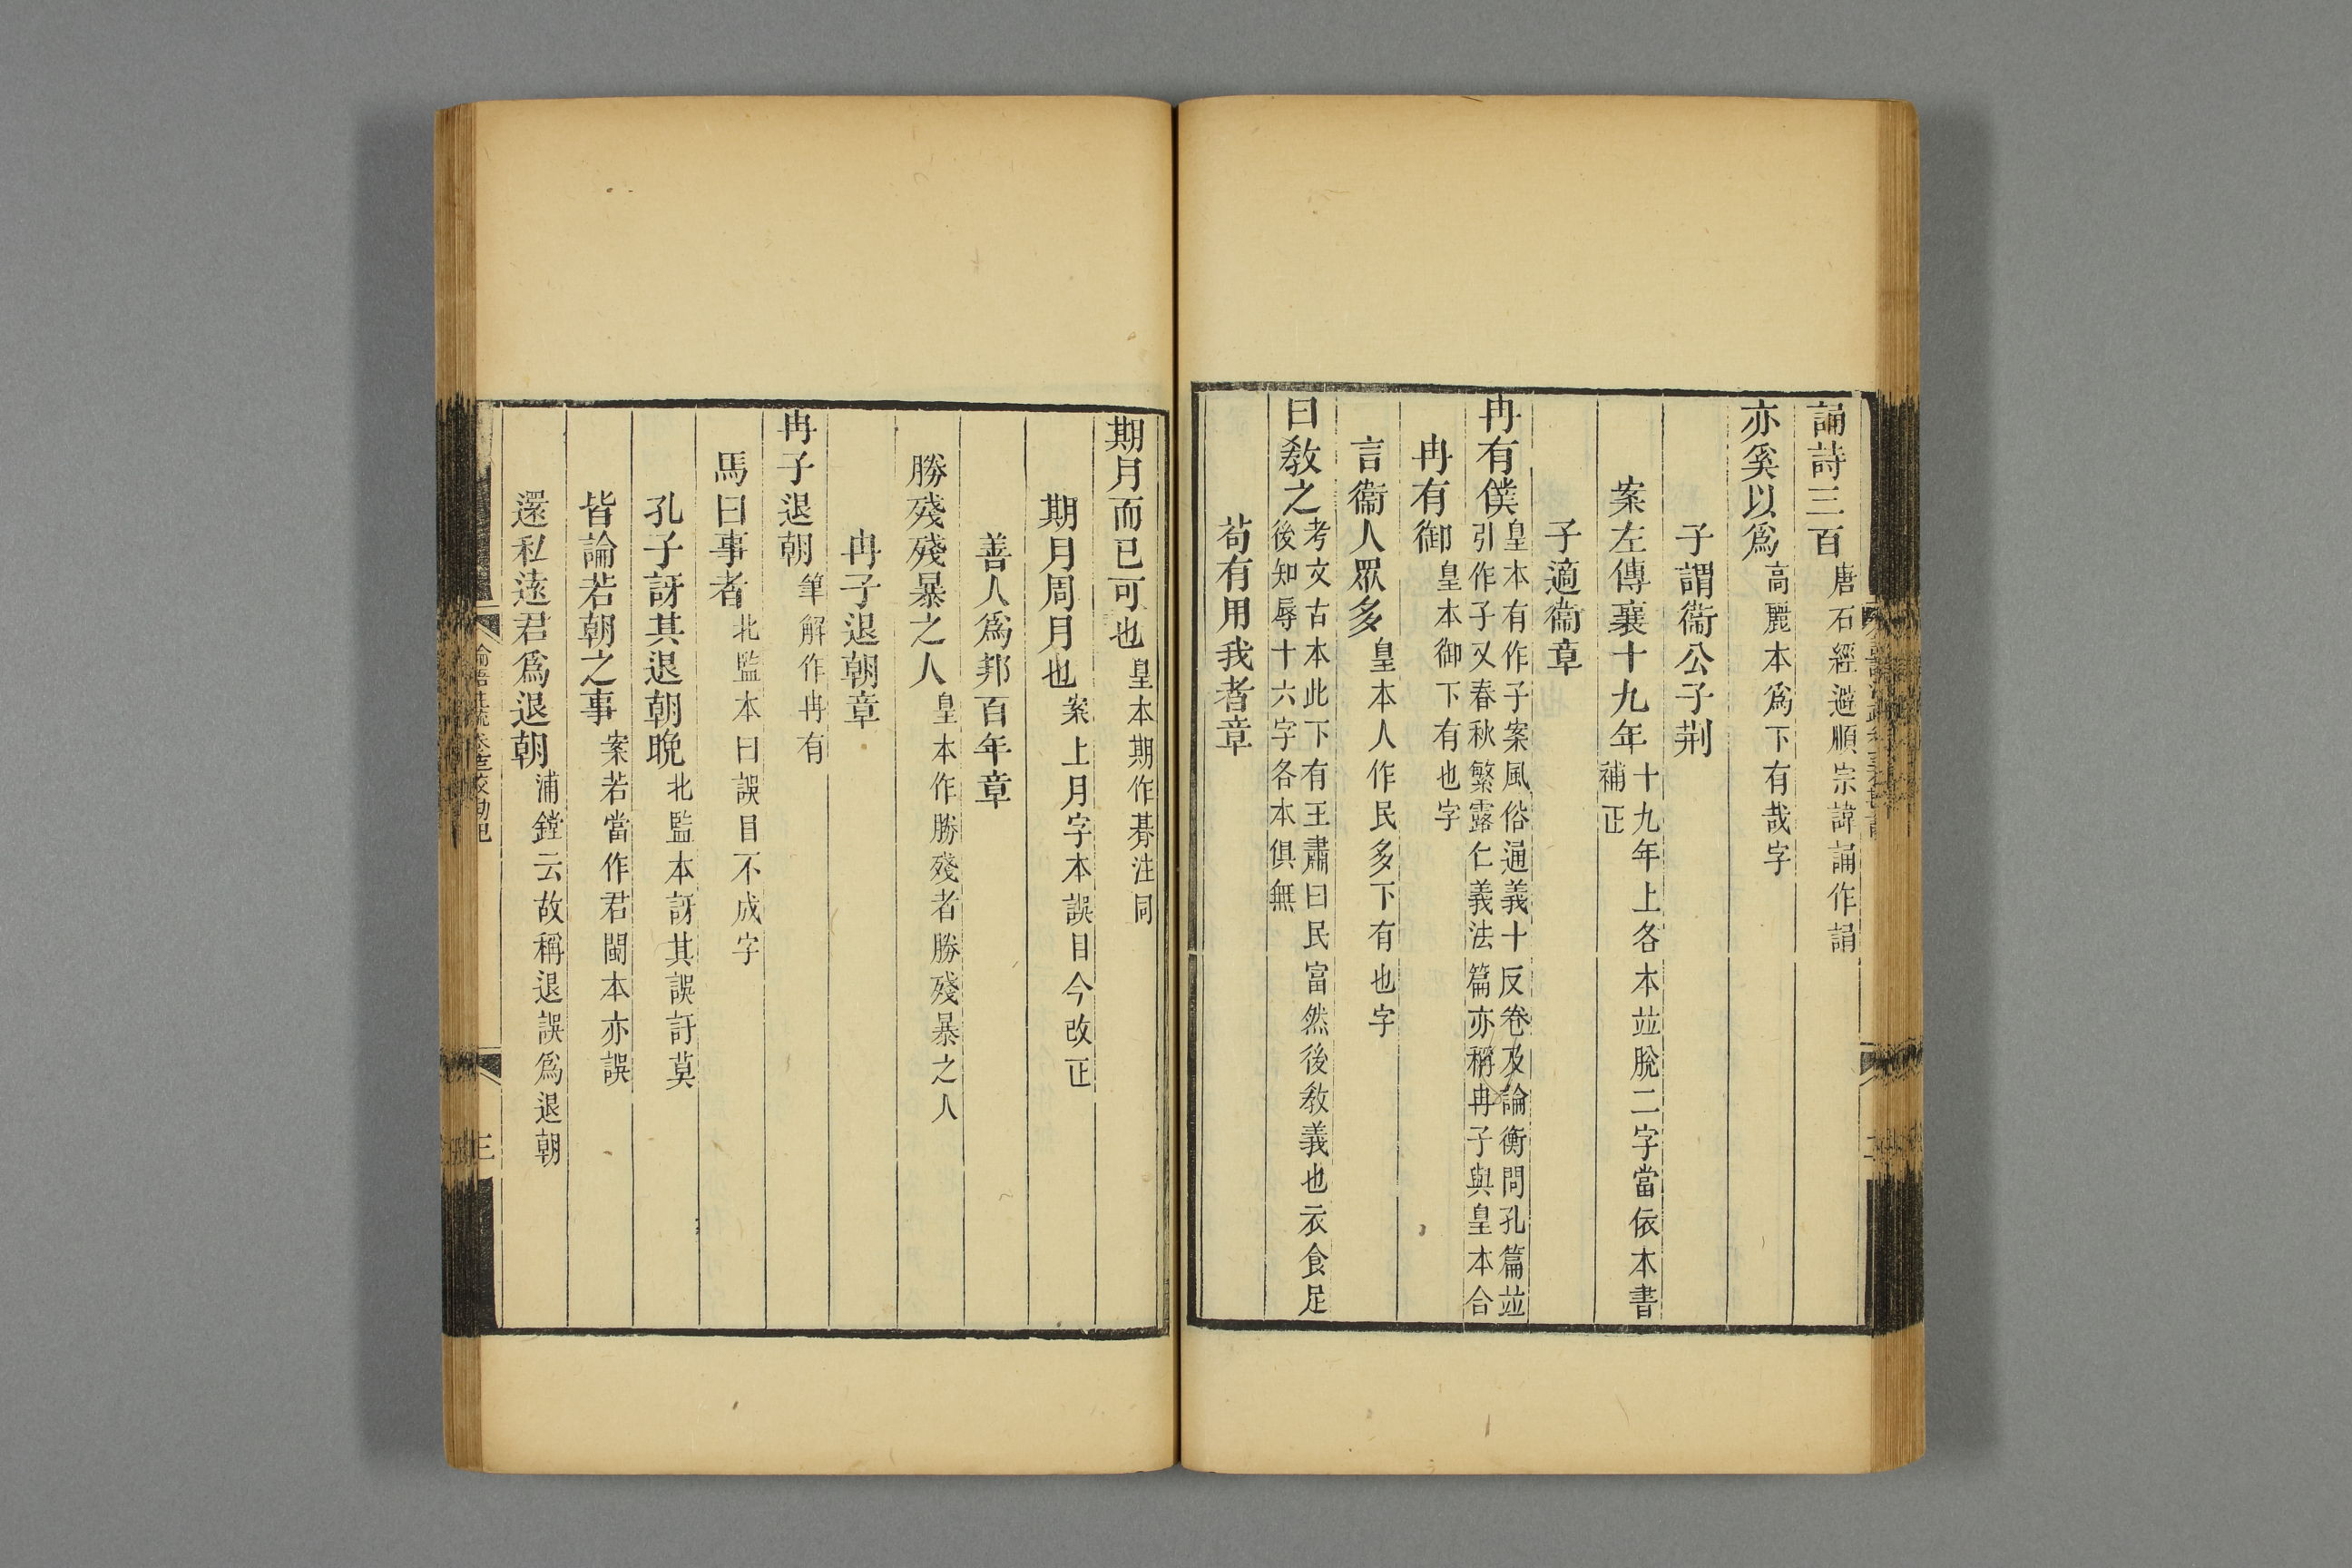 誦詩三百唐石經避順宗諱誦作誦
亦奚以爲高麗本爲下有哉字
子謂衞公子荆
案左傳襄十九年十九年上各本並脫二字當依本書補正
子適衞章
冉有僕皇本有作子案風俗通義十反卷及論衡問孔篇並引作子又春秋繁露仁義法篇亦稱冉子與皇本合
冉有御皇本御下有也字
言衞人眾多皇本人作民多下有也字
曰敎之考文古本此下有王肅曰民富然後敎義也衣食足後知辱十六字各本俱無
苟有用我者章
期月而已可也皇本期作朞注同
期月周月也案上月字本誤目今改正
善人爲邦百年章
勝殘殘暴之人皇本作勝殘者勝殘暴之人
冉子退朝章
冉子退朝筆解作冉有
馬曰事者北監本曰誤目不成字
孔子訝其退朝晚北監本訝其誤訝莫
皆論若朝之事案若當作君閩本亦誤
還私遠君爲退朝浦鏜云故稱退誤爲退朝
論語注疏卷十三校勘記
三